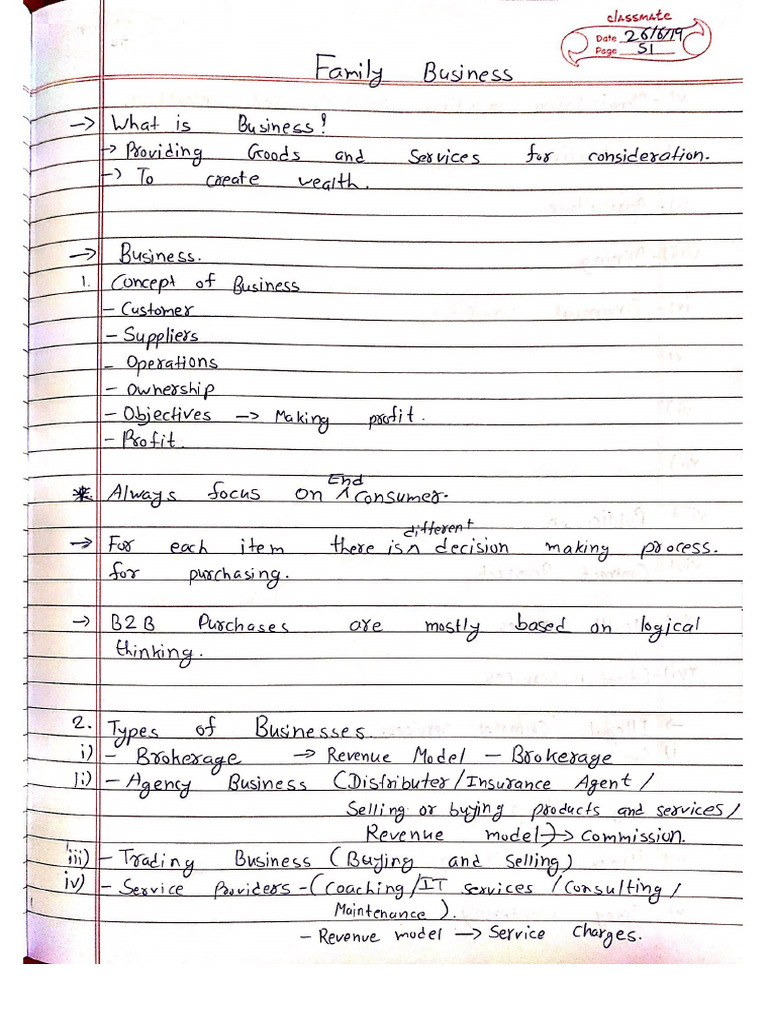 classmate
Date 26/6/19
Page 51
Family Business
-> What is Business?
-> Providing Goods and Services for consideration.
-> To create wealth.
-> Business.
1. Concept of Business
- Customer
- Suppliers
- Operations
- Ownership
- Objectives -> Making profit.
- Profit.
* Always focus on End Consumer.
-> For each item there is different decision making process.
for purchasing.
-> B2B Purchases are mostly based on logical
thinking.
2. Types of Businesses.
i) - Brokerage -> Revenue Model - Brokerage
ii) - Agency Business (Distributer/Insurance Agent/
Selling or buying products and services/
Revenue model)-> Commission.
iii) - Trading Business (Buying and Selling)
iv) - Service Providers - (Coaching/IT services/Consulting/
Maintenance).
- Revenue model -> Service charges.